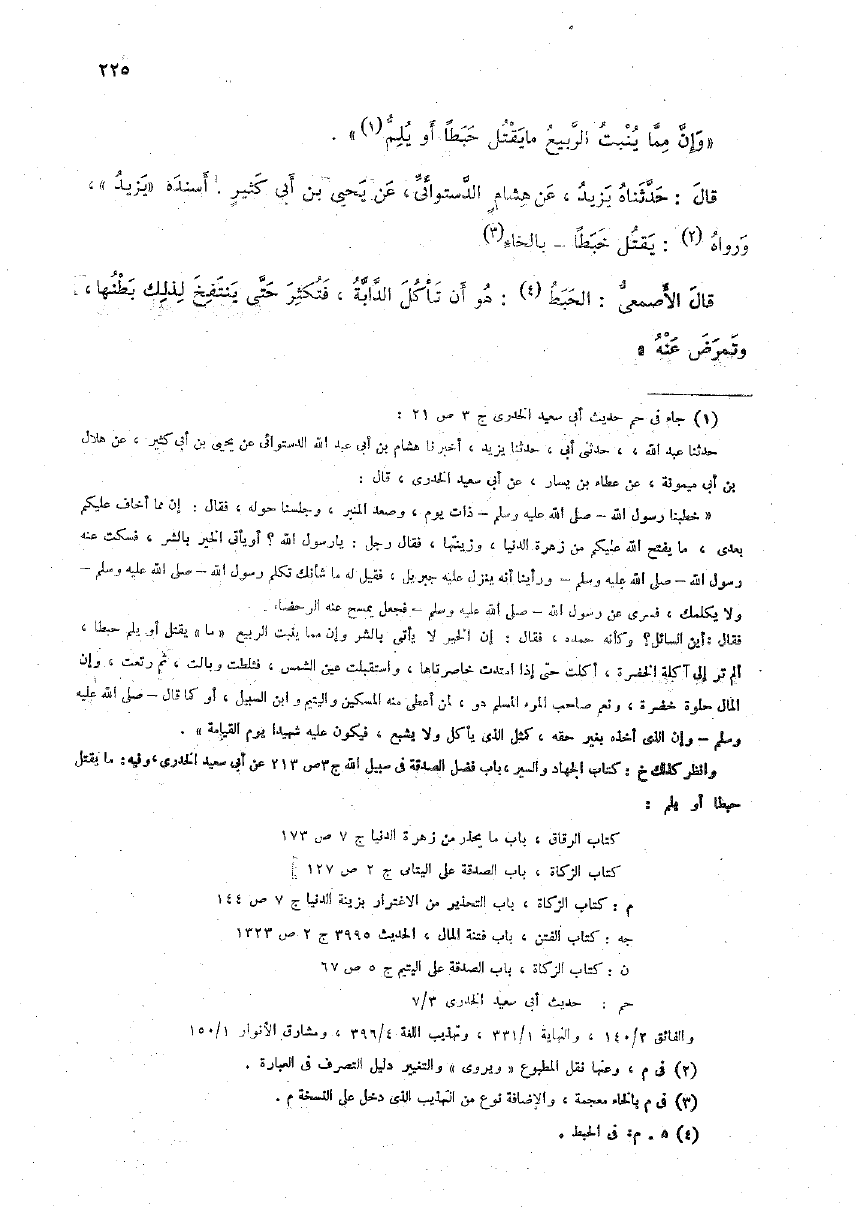 ٢٢٥
«وَإِنَّ مِمَّا يُنْبتُ الرَّبيعُ مايَقْتُل حَبَطاً أَو يُلِمُّ(١)» .
قالَ : حَدَّثَناهُ يَزيدُ ، عَن هِشام الدَّستوائُىِّ، عَن يَحيى بن أَبى كَثيرٍ . أَسندَه «يَزيدُ» ،
وَرواهُ (٢) : يَقتُل خَبَطًا – بالخاءِ(٣)
قالَ الأَصمعىُّ : الحَبَطُ (٤) : هُو أَن تَأكُلَ الدَّابَّةُ ، فَتُكثِرَ حَتَّى يَنتَفِخَ لِذلِك بَطْنُها ،
وتَمرَضَ عَنْهُ ٥
(١) جاء فى حم حديث أبى سعيد الخدرى ج ٣ ص ٢١ :
حدثنا عبد الله ، ، حدثنى أبى ، حدثنا يزيد ، أخبرنا هشام بن أبى عبد الله الدستوائى عن يحيى بن أبى كثير ، عن هلال
بن أبى ميمونة ، عن عطاء بن يسار ، عن أبى سعيد الخدرى ، قال :
« خطبنا رسول الله – صلى الله عليه وسلم – ذات يوم ، وصعد المنبر ، وجلسنا حوله ، فقال : إن مما أخاف عليكم
بعدى ، ما يفتح الله عليكم من زهرة الدنيا ، وزينتها ، فقال رجل : يارسول الله ؟ أويأتى الخير بالشر ، فسكت عنه
رسول الله – صلى الله عليه وسلم – ورأينا أنه ينزل عليه جبريل ، فقيل له ما شأنك تكلم رسول الله – صلى الله عليه وسلم –
ولا يكلمك ، فسرى عن رسول الله – صلى الله عليه وسلم – فجعل يمسح عنه الرحضاء .
فقال :أين السائل؟ وكأنه حمده ، فقال : إن الخير لا يأتى بالشر وإن مما ينبت الربيع «ما» يقتل أو يلم حبطا ،
ألم تر إلى آكلة الخضرة ، أكلت حتى إذا امتدت خاصرتاها ، واستقبلت عين الشمس ، فثلطت وبالت ، ثم رتعت ، وإن
المال حلوة خضرة ، ونعم صاحب المرء المسلم هو ، لمن أعطى منه المسكين واليتيم وابن السبيل ، أو كما قال – صلى الله عليه
وسلم – وإن الذى أخذه بغير حقه ، كمثل الذى يأكل ولا يشبع ، فيكون عليه شهيدا يوم القيامة » .
وانظر كذلك خ : كتاب الجهاد والسير ،باب فضل الصدقة فى سبيل الله ج٣ص ٢١٣ عن أبى سعيد الخدرى،وفيه: ما يقتل
حبطا أو يلم :
كتاب الرقاق ، باب ما يحذر من زهرة الدنيا ج ٧ ص ١٧٣
كتاب الزكاة ، باب الصدقة على اليتامى ج ٢ ص ١٢٧
م : كتاب الزكاة ، باب التحذير من الاغترار بزينة الدنيا ج ٧ ص ١٤٤
جه : كتاب الفتن ، باب فتنة المال ، الحديث ٣٩٩٥ ج ٢ ص ١٣٢٣
ن : كتاب الزكاة ، باب الصدقة على اليتيم ج ٥ ص ٦٧
حم : حديث أبى سعيد الخدرى ٧/٣
والفائق ١٤٠/٢ ، والنهاية ٣٣١/١ ، وتهذيب اللغة ٣٩٦/٤ ، ومشارق الأنوار ١٥٠/١
(٢) فى م ، وعنها نقل المطبوع « ويروى » والتغيير دليل التصرف فى العبارة .
(٣) فى م بالخاء معجمة ، والإضافة نوع من التهذيب الذى دخل على النسخة م .
(٤) ٥ . م: فى الحبط .